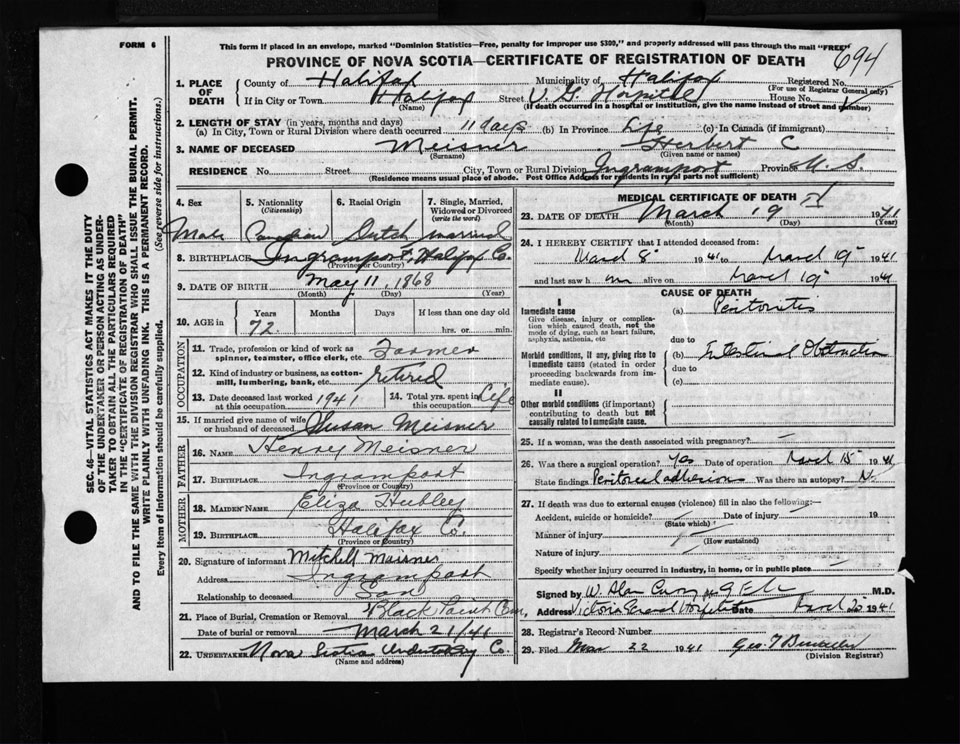 FORM 6
This form if placed in an envelope, marked "Dominion Statistics—Free, penalty for improper use $300," and properly addressed will pass through the mail "FREE"
694
PROVINCE OF NOVA SCOTIA—CERTIFICATE OF REGISTRATION OF DEATH
1. PLACE OF DEATH
County of Halifax Municipality of Halifax Registered No.
(For use of Registrar General only)
If in City or Town Halifax Street V. G. Hospital House No.
(Name) (If death occurred in a hospital or institution, give the name instead of street and number)
2. LENGTH OF STAY (in years, months and days)
(a) In City, Town or Rural Division where death occurred 11 days (b) In Province Life (c) In Canada (if immigrant)
3. NAME OF DECEASED Meisner Herbert C
(Surname) (Given name or names)
RESIDENCE No. Street City, Town or Rural Division Ingramport Province N. S.
(Residence means usual place of abode. Post Office Address for residents in rural parts not sufficient)
4. Sex 5. Nationality (Citizenship) 6. Racial Origin 7. Single, Married, Widowed or Divorced (write the word)
Male Canadian Dutch married
8. BIRTHPLACE Ingramport, Halifax Co.
(Province or Country)
9. DATE OF BIRTH May 11, 1868
(Month) (Day) (Year)
10. AGE in Years Months Days If less than one day old
72 hrs. or min.
OCCUPATION
11. Trade, profession or kind of work as spinner, teamster, office clerk, etc. Farmer
12. Kind of industry or business, as cotton-mill, lumbering, bank, etc. retired
13. Date deceased last worked at this occupation 1941 14. Total yrs. spent in this occupation Life
15. If married give name of wife or husband of deceased Susan Meisner
FATHER
16. NAME Henry Meisner
17. BIRTHPLACE Ingramport
(Province or Country)
MOTHER
18. MAIDEN NAME Eliza Hubley
19. BIRTHPLACE Halifax Co.
(Province or Country)
20. Signature of informant Mitchell Meisner
Address Ingramport
Relationship to deceased Son
21. Place of Burial, Cremation or Removal Black Point Cem.
Date of burial or removal March 21/41
22. UNDERTAKER Nova Scotia Undertaking Co.
(Name and address)
MEDICAL CERTIFICATE OF DEATH
23. DATE OF DEATH March 19 1941
(Month) (Day) (Year)
24. I HEREBY CERTIFY that I attended deceased from:
March 8 1941 to March 19 1941
and last saw h im alive on March 19 1941
CAUSE OF DEATH
I
Immediate cause (a) Peritonitis
Give disease, injury or complication which caused death, not the mode of dying, such as heart failure, asphyxia, asthenia, etc
due to
Morbid conditions, if any, giving rise to immediate cause (stated in order proceeding backwards from immediate cause).
(b) Intestinal Obstruction
due to
(c)
II
Other morbid conditions (if important) contributing to death but not causally related to immediate cause.
25. If a woman, was the death associated with pregnancy? —
26. Was there a surgical operation? Yes Date of operation March 15 1941
State findings Peritoneal adhesions Was there an autopsy? No
27. If death was due to external causes (violence) fill in also the following:—
Accident, suicide or homicide? Date of injury 19
(State which)
Manner of injury
(How sustained)
Nature of injury
Specify whether injury occurred in industry, in home, or in public place
Signed by W. Alan Curry M.D.
Address Victoria General Hospital Date March 20 1941
28. Registrar's Record Number
29. Filed Mar 22 1941 Geo. T
(Division Registrar)
SEC. 46—VITAL STATISTICS ACT MAKES IT THE DUTY
OF THE UNDERTAKER OR PERSON ACTING AS UNDER-
TAKER TO OBTAIN ALL THE PARTICULARS REQUIRED
IN THE "CERTIFICATE OF REGISTRATION OF DEATH"
AND TO FILE THE SAME WITH THE DIVISION REGISTRAR WHO SHALL ISSUE THE BURIAL PERMIT.
WRITE PLAINLY WITH UNFADING INK. THIS IS A PERMANENT RECORD.
Every item of information should be carefully supplied. (See reverse side for instructions.)